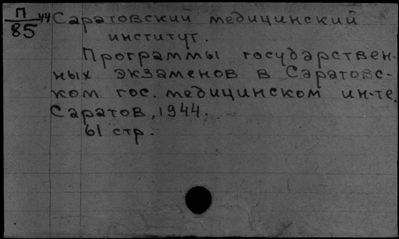 П/85 44 Саратовский медицинский
институт.
Программы государствен-
ных экзаменов в Саратовс-
ком гос. медицинском ин-те.
Саратов, 1944.
61 стр.